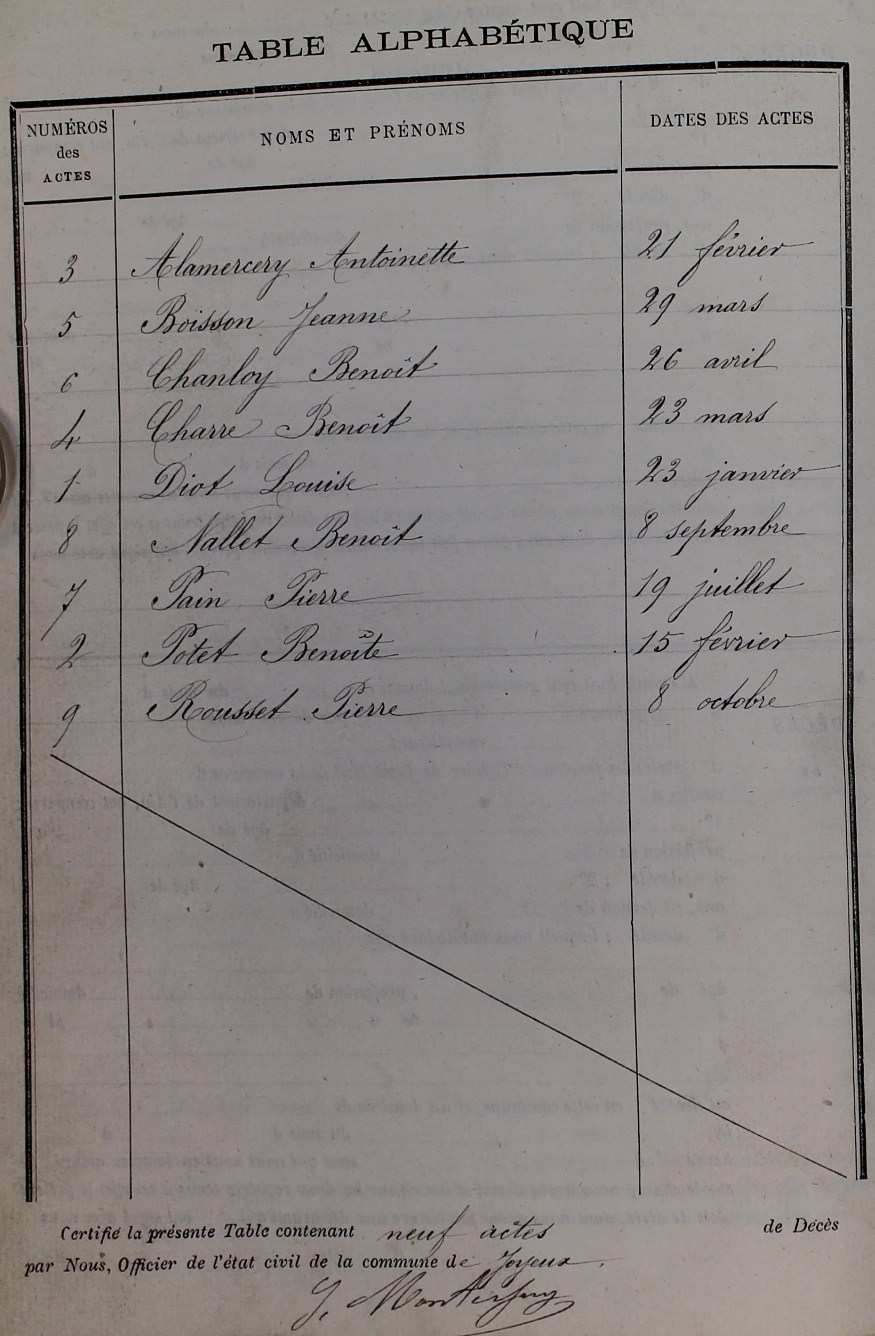 TABLE ALPHABÉTIQUE
NUMÉROS des ACTES NOMS ET PRÉNOMS DATES DES ACTES
3 Alamercery Antoinette 21 février
5 Boisson Jeanne 29 mars
6 Chanloy Benoît 26 avril
4 Charre Benoît 23 mars
1 Diot Louise 23 janvier
8 Nallet Benoît 8 septembre
7 Pain Pierre 19 juillet
2 Potet Benoîte 15 février
9 Rousset Pierre 8 octobre
Certifié la présente Table contenant neuf actes de Décès
par Nous, Officier de l'état civil de la commune de Joyeux.